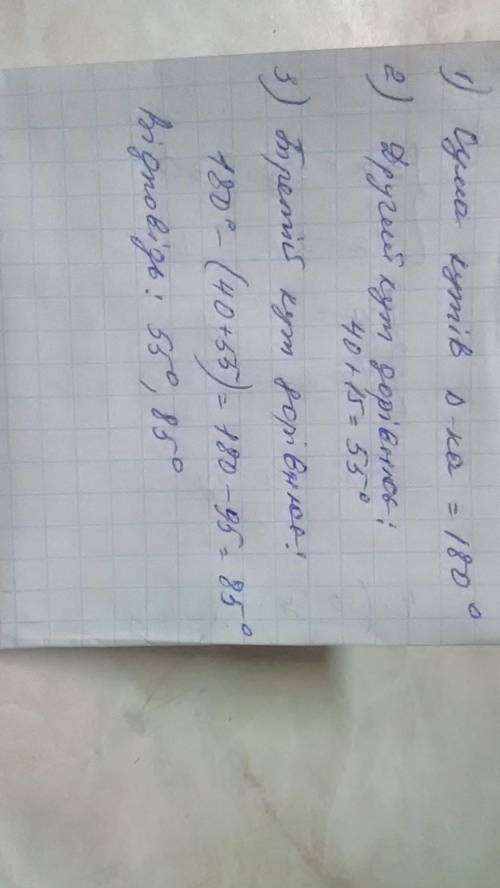 1) Сума кутів Δ-ка = 180°
2) Другий кут дорівнює:
40 + 15 = 55°
3) Третій кут дорівнює:
180° - (40+55) = 180 - 95 = 85°
Відповідь: 55°, 85°